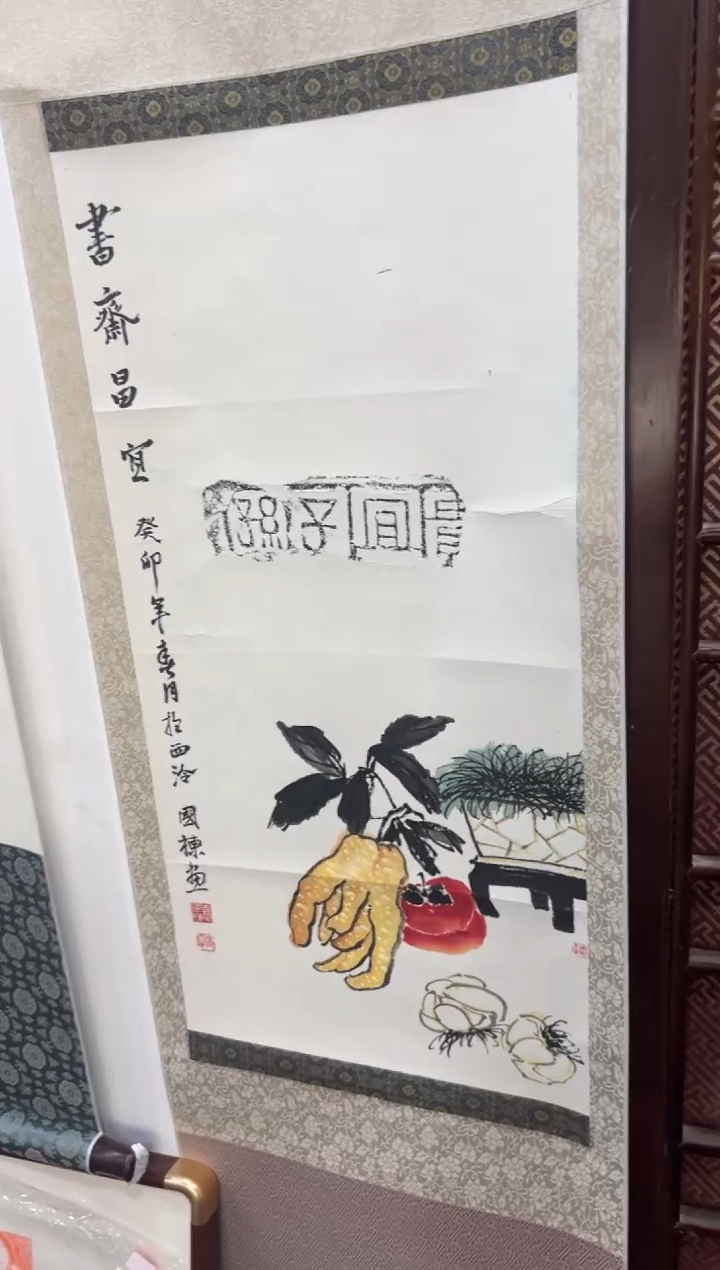 書齋昌宜
癸卯年春月於西泠 國棟畫
宜子孫